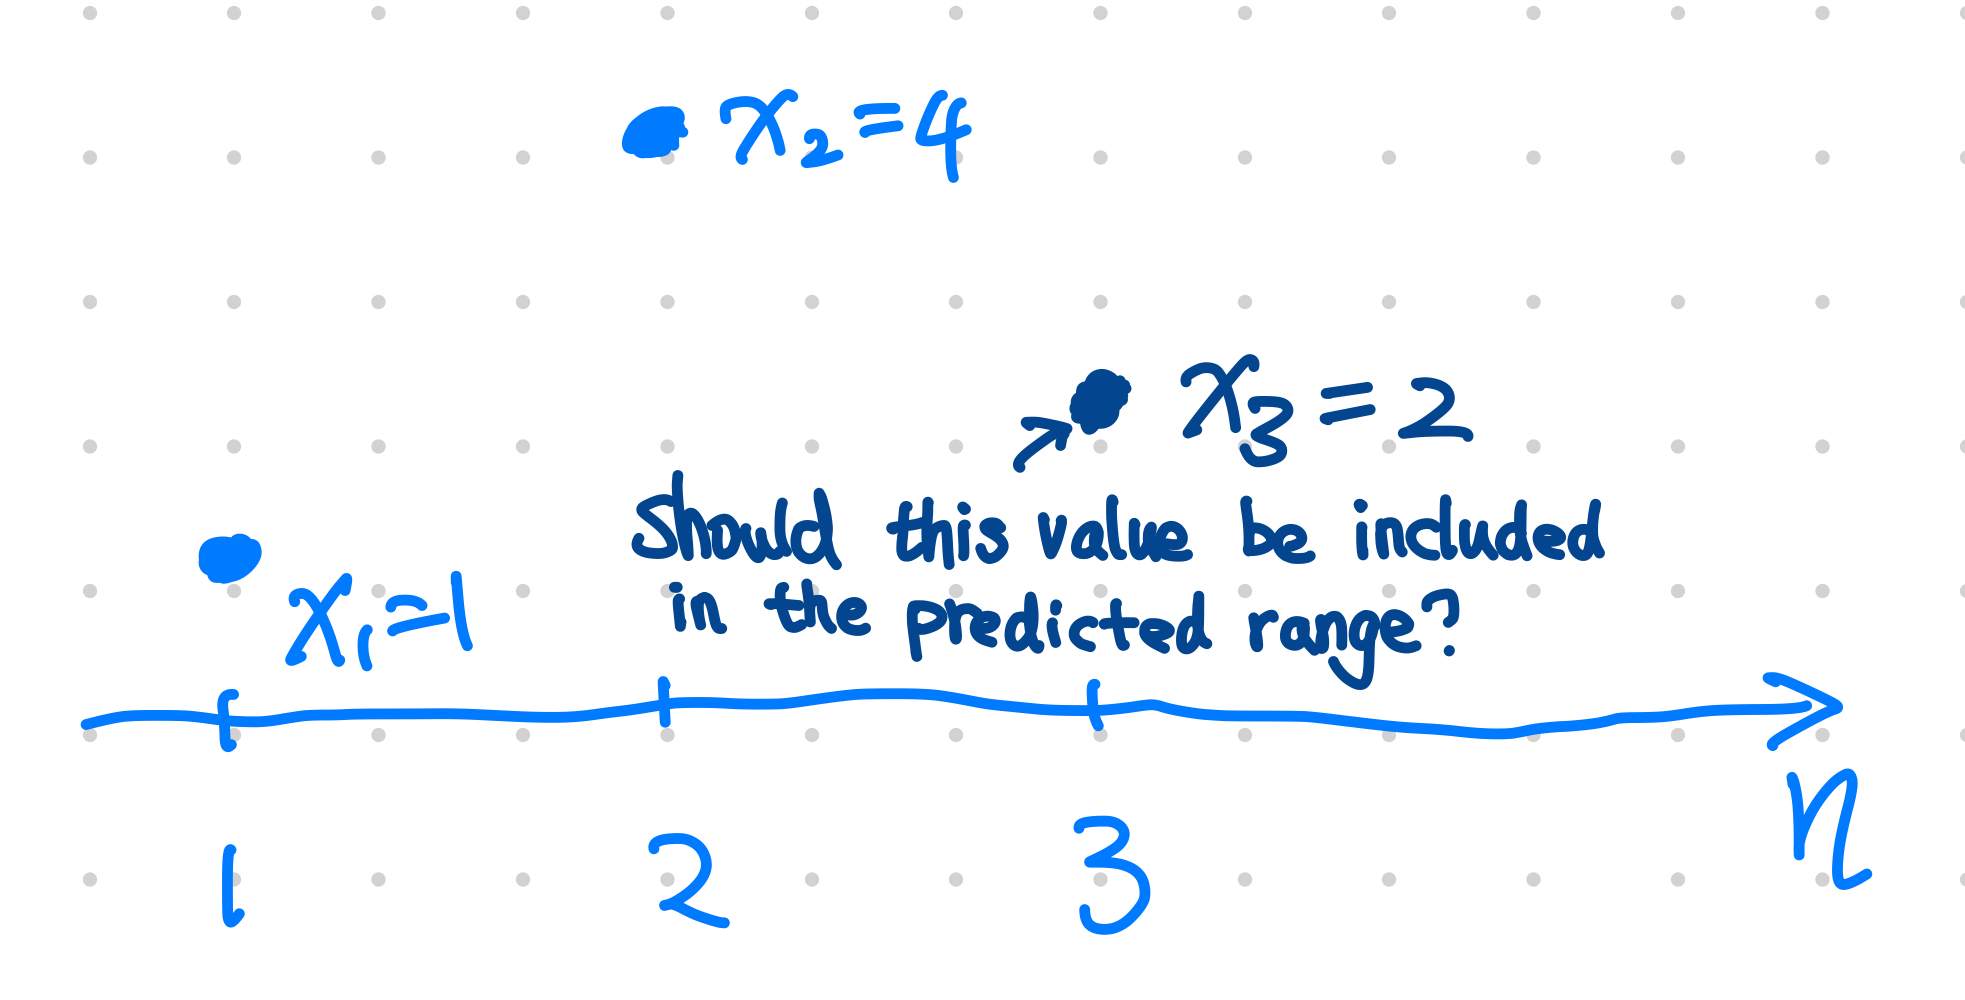 x₂=4
x₃=2
Should this value be included
in the predicted range?
x₁=1
n
1 2 3